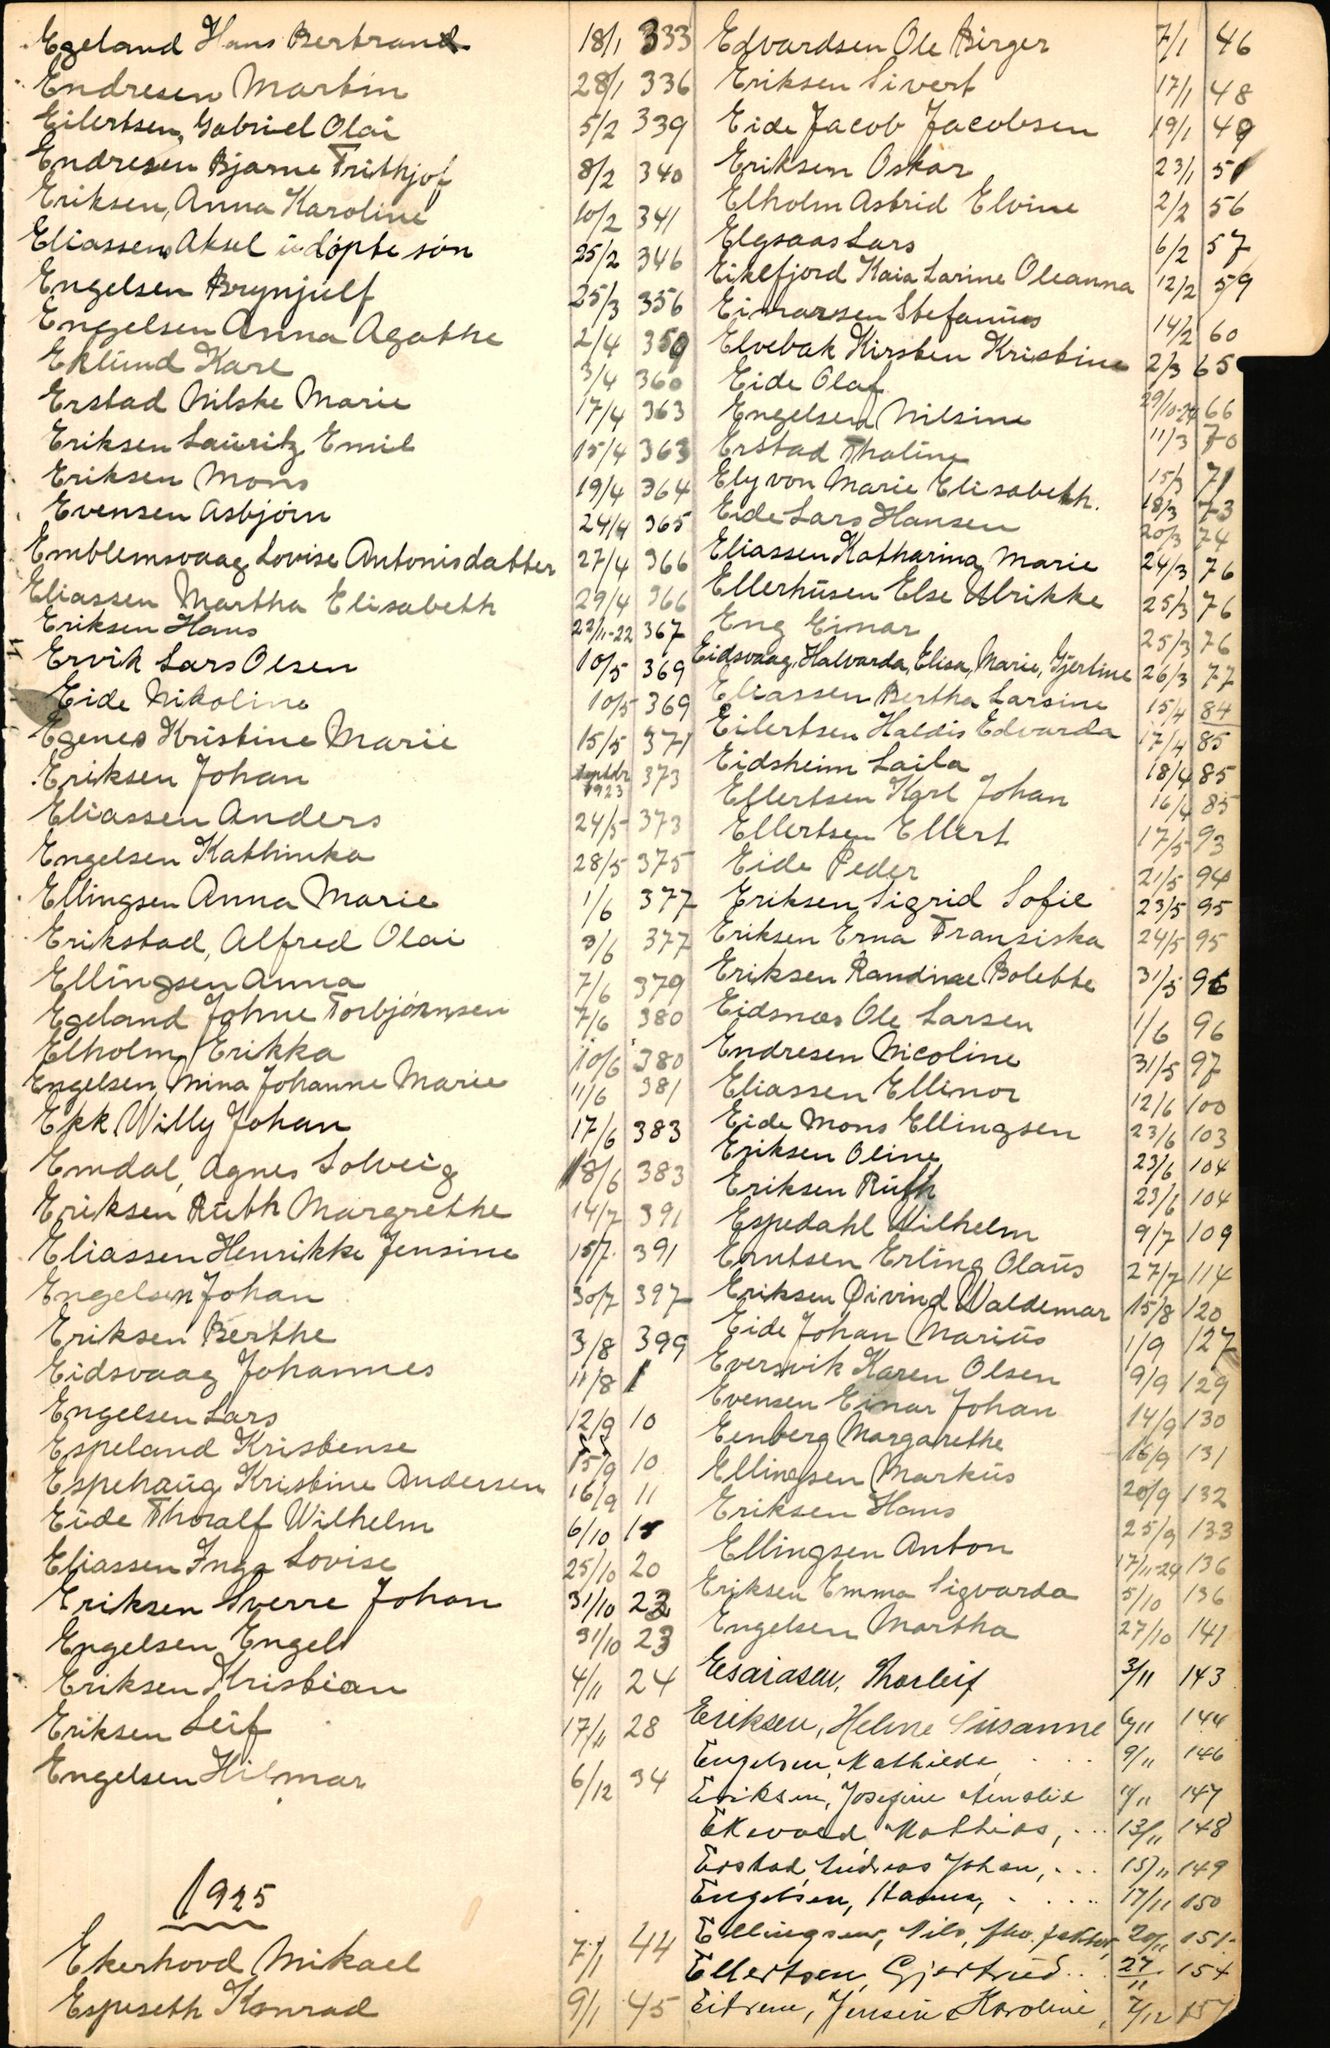 Egeland Hans Bertrand 18/1 333
Endresen Martin 28/1 336
Eilertsen, Gabriel Olai 5/2 339
Endresen Bjarne Frithjof 8/2 340
Eriksen, Anna Karoline 10/2 341
Eliassens Aksel udöpte sön 25/2 346
Engelsen Brynjulf 25/3 356
Engelsen Anna Agathe 2/4 359
Eklund Karl 3/4 360
Erstad Nilske Marie 17/4 363
Eriksen Lauritz Emil 15/4 363
Eriksen Mons 19/4 364
Evensen Asbjörn 24/4 365
Emblemsvaag Lovise Antonisdatter 27/4 366
Eliassen Martha Elisabeth 29/4 366
Eriksen Hans 22/11-22 367
Ervik Lars Olsen 10/5 369
Eide Nikoline 10/5 369
Egenes Kristine Marie 15/5 371
Eriksen Johan 1923 373
Eliassen Anders 24/5 373
Engelsen Kathinka 28/5 375
Ellingsen Anna Marie 1/6 377
Erikstad, Alfred Olai 3/6 377
Ellingsen Anna 7/6 379
Egeland Johne Torbjörnsen 7/6 380
Elholm Erikka 10/6 380
Engelsen Nina Johanne Marie 11/6 381
Ekk Willy Johan 17/6 383
Emdal, Agnes Solveig 18/6 383
Eriksen Ruth Margrethe 14/7 391
Eliassen Henrikke Jensine 15/7 391
Engelsen Johan 30/7 397
Eriksen Berthe 3/8 399
Eidsvaag Johannes 11/8 1
Engelsen Lars 12/9 10
Espeland Kristense 15/9 10
Espehaug Kristine Andersen 16/9 11
Eide Thoralf Wilhelm 6/10
Eliassen Inga Lovise 25/10 20
Eriksen Sverre Johan 31/10 23
Engelsen Engel 31/10 23
Eriksen Kristian 4/11 24
Eriksen Leif 17/11 28
Engelsen Hilmar 6/12 34
1925
Ekerhovd Mikael 7/1 44
Espeseth Konrad 9/1 45
Edvardsen Ole Birger 7/1 46
Eriksen Sivert 17/1 48
Eide Jacob Jacobsen 19/1 49
Eriksen Oskar 23/1 51
Elholm Astrid Elvine 2/2 56
Elgsaas Lars 6/2 57
Eikefjord Kaia Larine Oleanna 12/2 59
Einarsen Stefanus 14/2 60
Elvebak Kirsten Kristine 2/3 65
Eide Olaf 29/10-24 66
Engelsen Nilsine 11/3 70
Erstad Thaline 15/3 71
Ely von Marie Elisabeth. 18/3 73
Eide Lars Hansen 20/3 74
Eliassen Katharina Marie 24/3 76
Ellerhusen Else Ulrikke 25/3 76
Eng Einar 25/3 76
Eidsvaag, Halvarda, Elisa, Marie, Gjertine 26/3 77
Eliassen Bertha Larsine 15/4 84
Eilertsen Haldis Edvarda 17/4 85
Eidsheim Laila 18/4 85
Ellertsen Karl Johan 16/4 85
Ellertsen Ellert 17/5 93
Eide Peder 21/5 94
Eriksen Sigrid Sofie 23/5 95
Eriksen Erna Fransiska 24/5 95
Eriksen Randine Bolette 31/5 96
Eidsnes Ole Larsen 1/6 96
Endresen Nicoline 31/5 97
Eliassen Ellinor 12/6 100
Eide Mons Ellingsen 23/6 103
Eriksen Oline 23/6 104
Eriksen Ruth 23/6 104
Espedahl Wilhelm 9/7 109
Erling Olaus 27/7 114
Eriksen Öivind Waldemar 15/8 120
Eide Johan Marius 1/9 127
Evernvik Karen Olsen 9/9 129
Evensen Einar Johan 14/9 130
Eenberg Margarethe 16/9 131
Ellingsen Markus 20/9 132
Eriksen Hans 25/9 133
Ellingsen Anton 17/11-24 136
Eriksen Emma Sigvarda 5/10 136
Engelsen Martha 27/10 141
Esaiasen, Thorleif 3/11 143
Eriksen, Helene Susanne 6/11 144
Engelsen, Mathilde 9/11 146
Eriksen, Josefine Amalie 11/11 147
Ekevold Mathias, 13/11 148
Erstad Andreas Johan, 15/11 149
Engelsen, Hanna, 17/11 150
Ellingsen, Nils, fhv. faktor, 20/11 151
Ellertsen, Gjertrud 27/11 154
Eitrem, Jensine Karoline, 7/12 157